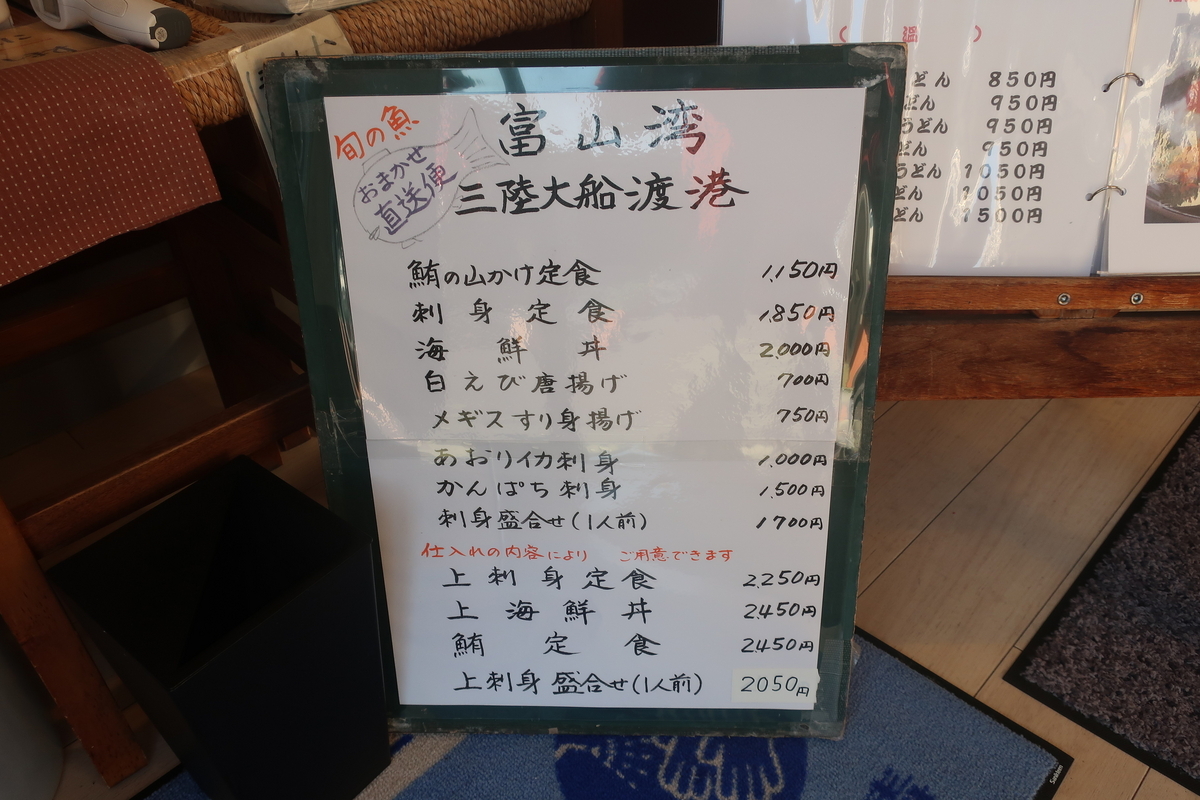 旬の魚
おまかせ
直送便
富山湾
三陸大船渡港
鮪の山かけ定食 1,150円
刺身定食 1,850円
海鮮丼 2,000円
白えび唐揚げ 700円
メギスすり身揚げ 750円
あおりイカ刺身 1,000円
かんぱち刺身 1,500円
刺身盛合せ(1人前) 1700円
仕入れの内容により ご用意できます
上刺身定食 2,250円
上海鮮丼 2,450円
鮪定食 2,450円
上刺身盛合せ(1人前) 2050円
温
どん 850円
どん 950円
うどん 950円
どん 950円
うどん 1050円
どん 1050円
どん 1500円